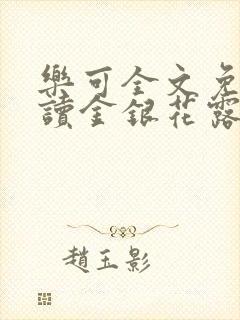 樂可全文免
讀金銀花露
趙玉影